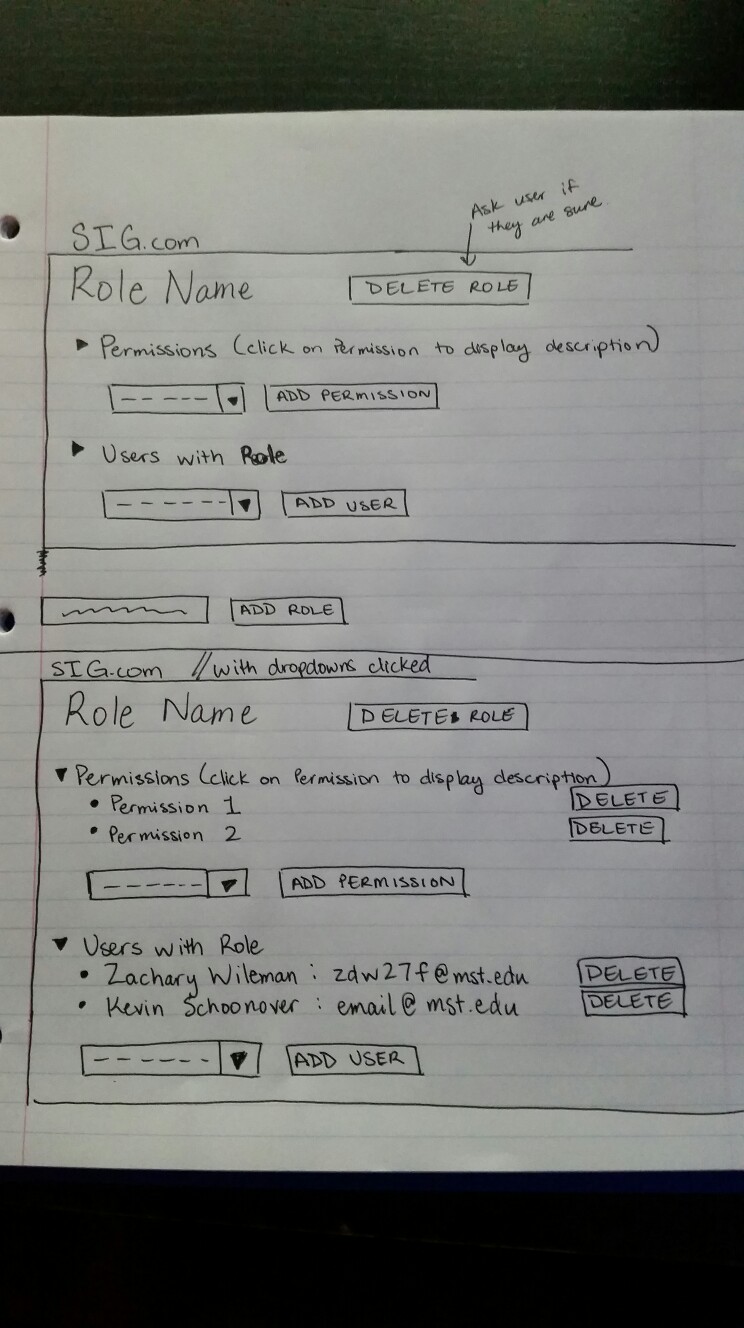 Ask user if
they are sure
SIG.com
Role Name DELETE ROLE
Permissions (click on Permission to display description)
ADD PERMISSION
Users with Role
ADD USER
ADD ROLE
SIG.com //with dropdowns clicked
Role Name DELETE ROLE
Permissions (click on Permission to display description)
• Permission 1 DELETE
• Permission 2 DELETE
ADD PERMISSION
Users with Role
• Zachary Wileman : zdw27f@mst.edu DELETE
• Kevin Schoonover : email@mst.edu DELETE
ADD USER